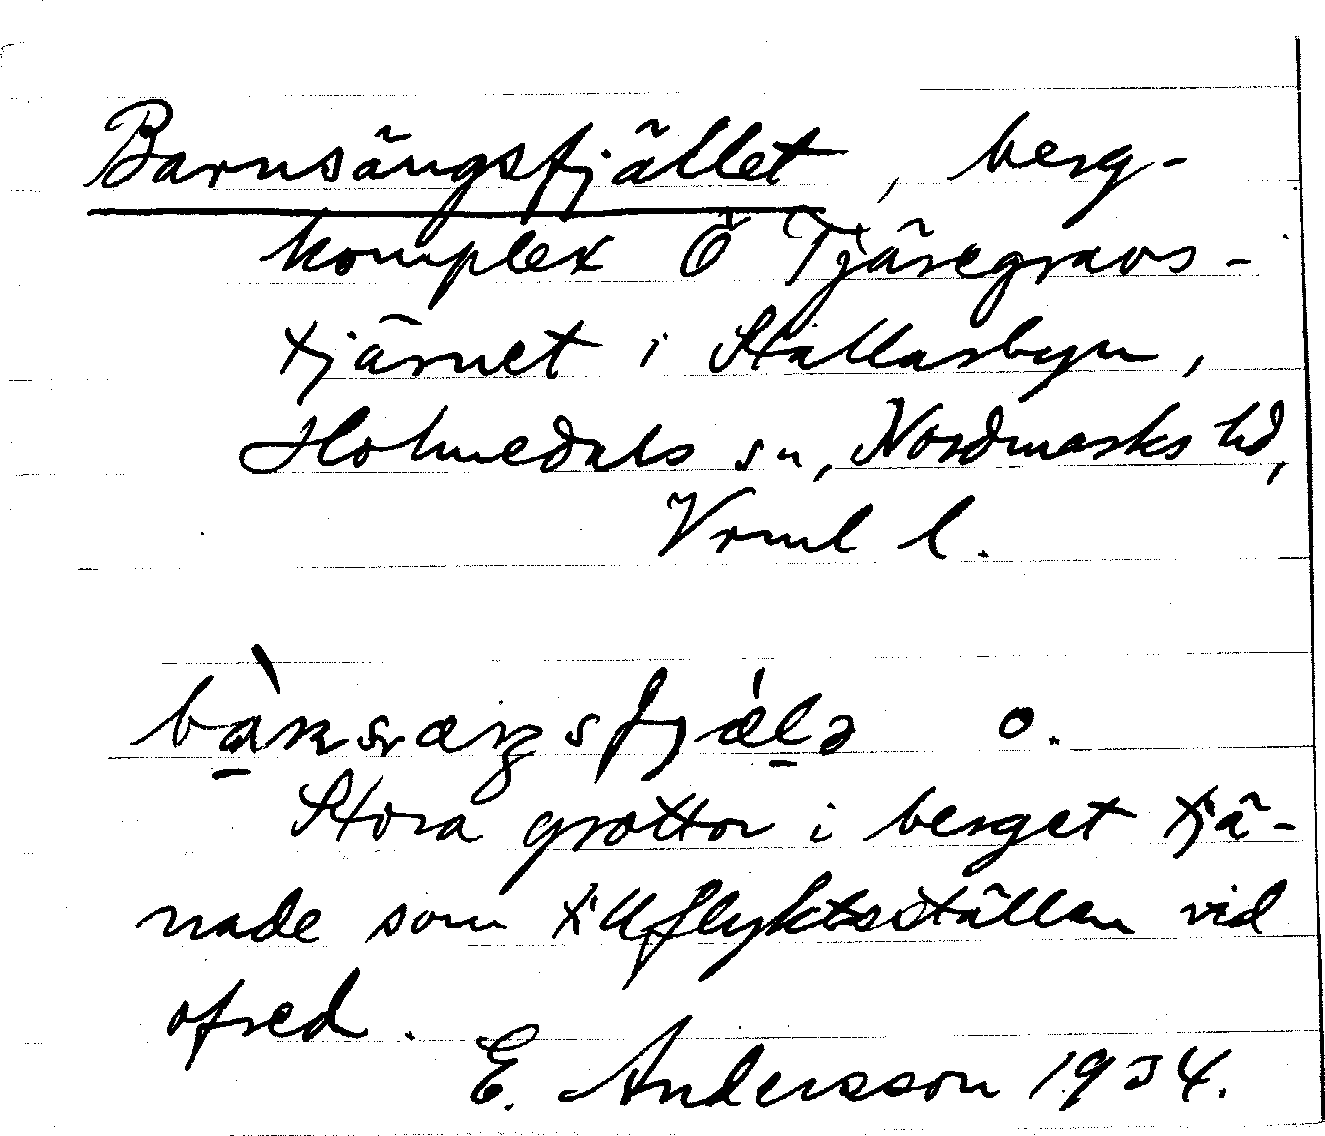 Barnsängsfjället, berg-
komplex Ö Tjäregravs-
tjärnet i Ställarsbyn,
Holmedals sn, Nordmarks hd,
Vrml l.
o.
Stora grottor i berget tjä-
nade som tillflyktsställen vid
ofred.
E. Andersson 1934.